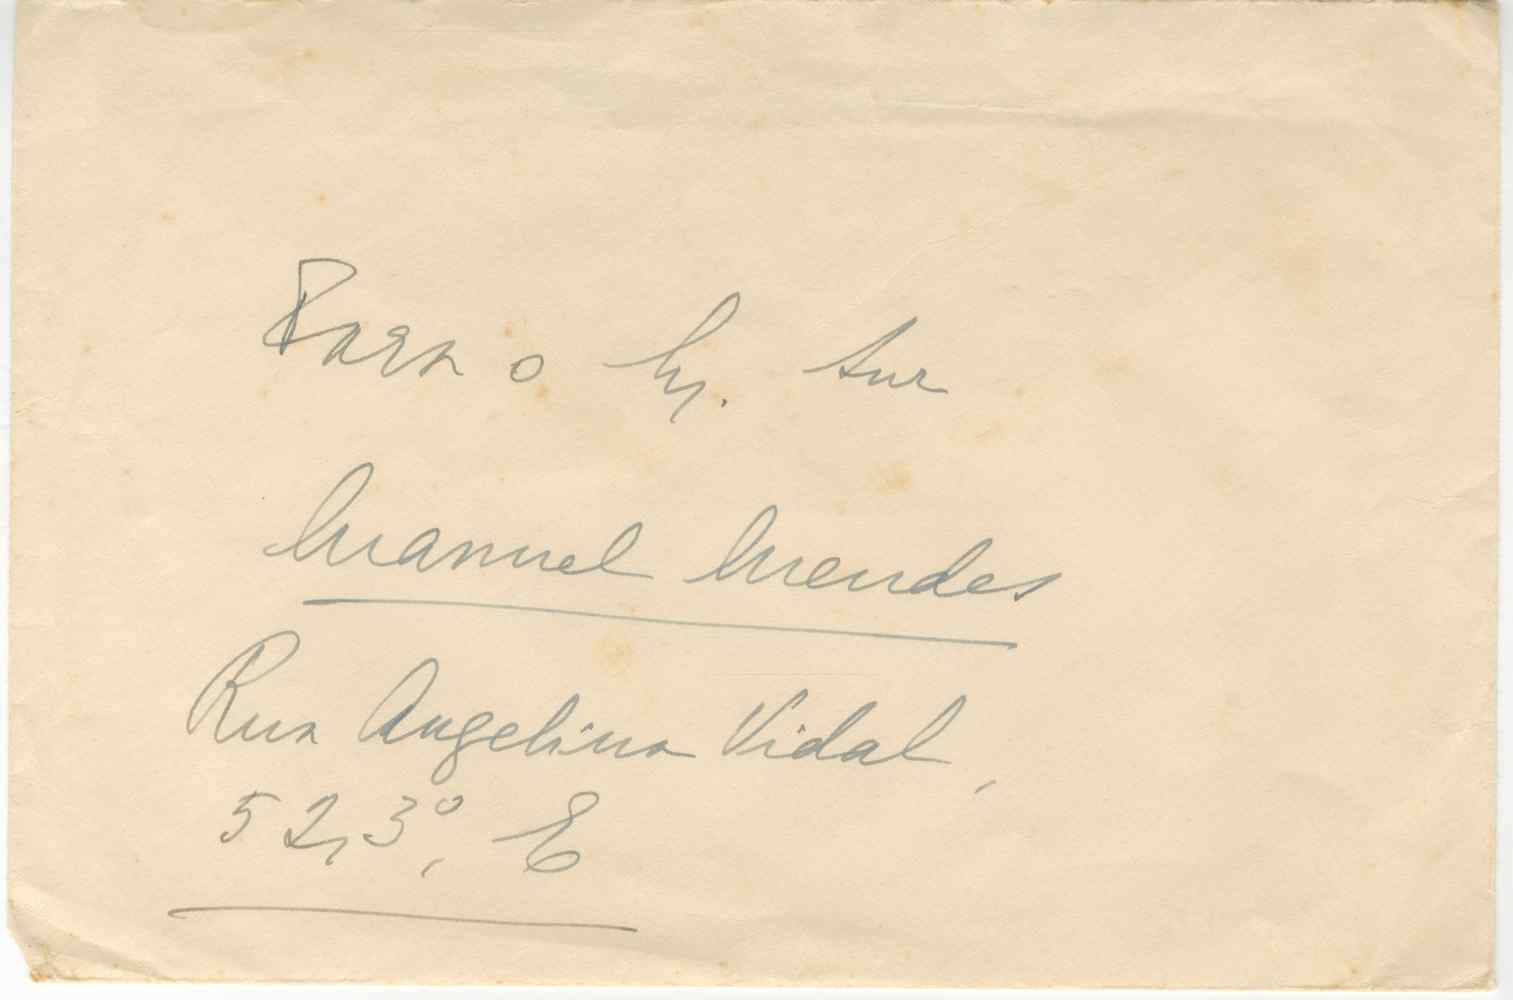 Para o
Manuel Mendes
Rua Angelina Vidal,
52, 3º, E